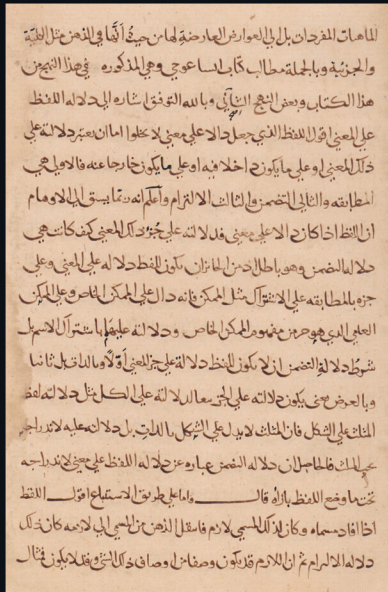 الماهيات المفردات بل الى العوارض العارضة لها من حيث أنها فى الذهن مثل الكلية
والجزئية وبالجملة مطالب كتاب ايساغوجى وهى المذكوره فى هذا النهج من
هذا الكتاب وبعض النهج الثانى وبالله التوفيق اشاره الى دلاله اللفظ
على المعنى اقول اللفظ الذى جعل دالا على معنى لا يخلوا اما ان يعتبر دلالته على
ذلك المعنى او على ما يكون داخلا فيه او على ما يكون خارجا عنه فالاولى هى
المطابقه والثانى التضمن والثالث الالتزام واعلم انه ربما يسبق الى الاوهام
ان اللفظ اذا كان دالا على معنى فدلالته على جزء ذلك المعنى كيف كانت هى
دلاله التضمن وهو باطل اذ من الجائز ان يكون اللفظ دلاله على المعنى وعلى
جزه بالمطابقه على الاشتراك مثل الممكن فانه دال على الممكن الخاص وعلى الممكن
العامى الذى هو جزء من مفهوم الممكن الخاص ودلالته عليهما باشتراك الاسم بل
شرط دلالة التضمن ان لا يكون اللفظ دلالة على جزء المعنى أولا وبالذات بل ثانيا
وبالعرض معنى يكون دلالته على الجزء دلالته على الكل مثل دلالة لفظ
المثلث على الشكل فان المثلث لا يدل على الشكل بالذات بل دلالته عليه لاندراجه
تحت المثلث فالحاصل ان دلاله التضمن عباره عن دلاله اللفظ على معنى لاندراجه
تحت ما وضع اللفظ بازائه قال واما على طريق الاستتباع اقول اللفظ
اذا افاد مسماه وكان لذلك المسمى لازم فانتقل الذهن من المسمى الى لازمه كان ذلك
دلاله الالتزام ثم ان اللازم قد يكون وصفا من اوصاف ذلك الشى وقد لا يكون مثال